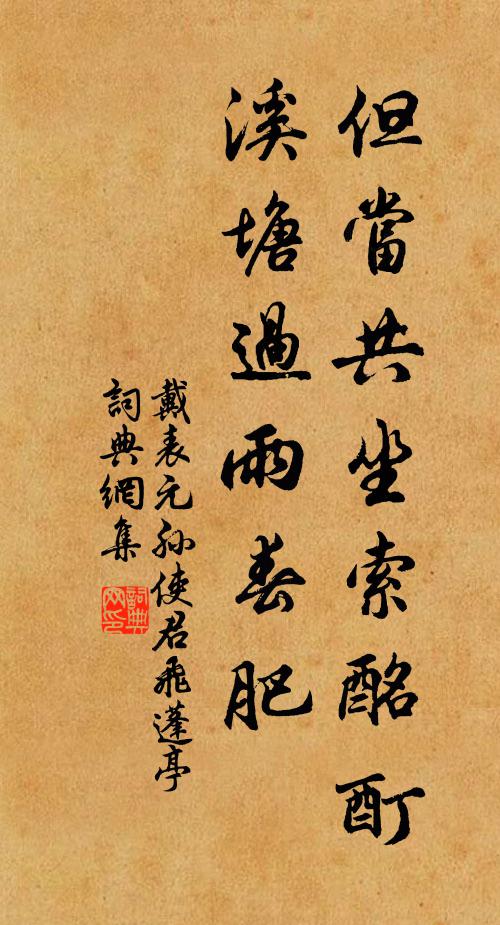 但當共坐索酩酊
溪塘過雨春肥
戴表元孫使君飛蓬亭
詞典網集
詞典
网印